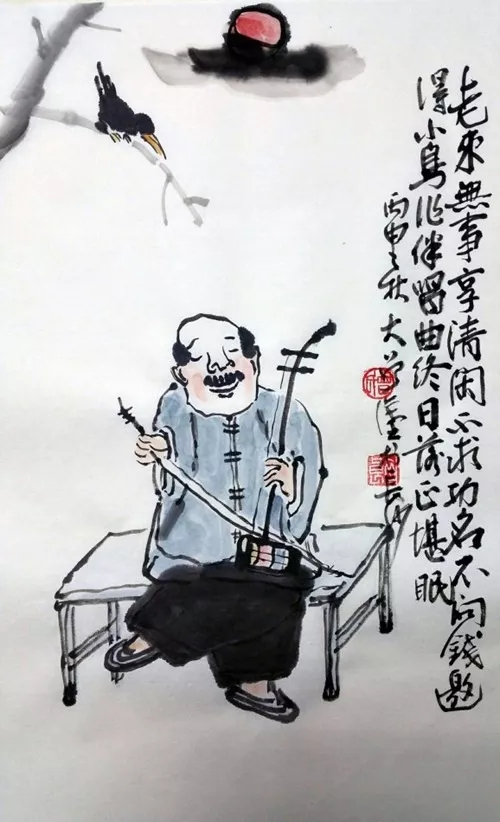 老來無事享清閑不求功名不问錢邀
得小鳥作伴唱曲终日落正堪眠
丙申之秋大